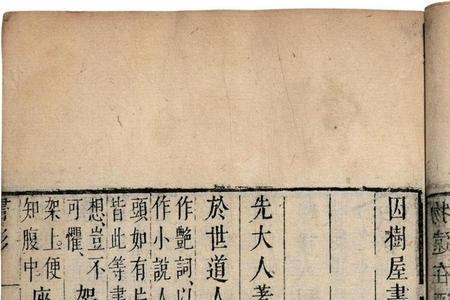 物遠在
因樹屋書
先大人著
於世道人
作艷詞以
作小說人
頭如有片
皆此等書
想豈不架
可懼座
架上便
知腹中
書影